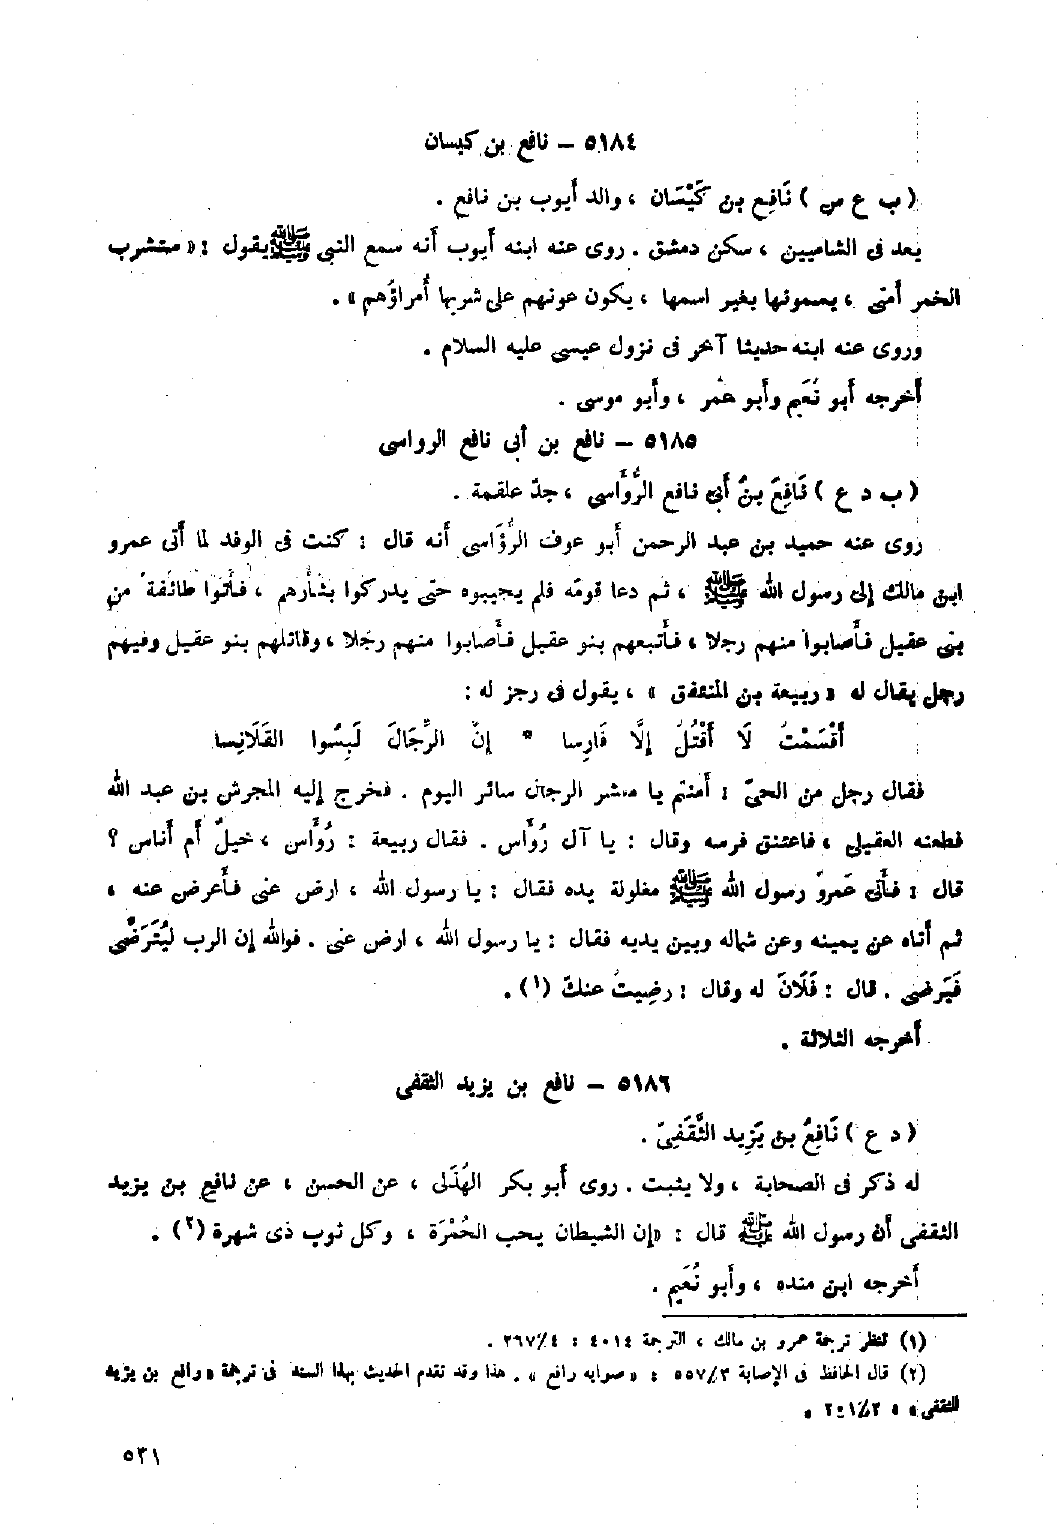 ٥١٨٤ – نافع بن كيسان
( ب ع س ) نَافِع بن كَيْسَان ، والد أيوب بن نافع .
يعد فى الشاميين ، سكن دمشق . روى عنه ابنه أيوب أنه سمع النبى ﷺ يقول : « ستشرب
الخمر أمتى ، يسمونها بغير اسمها ، يكون عونهم على شربها أُمراؤهم » .
وروى عنه ابنه حديثا آخر فى نزول عيسى عليه السلام .
أخرجه أبو نُعَيم وأبو عمر ، وأبو موسى .
٥١٨٥ – نافع بن أبى نافع الرواسى
( ب د ع ) نَافِعُ بنُ أبى نافع الرُّؤَاسى ، جدّ علقمة .
روى عنه حميد بن عبد الرحمن أبو عوف الرُّؤَاسى أنه قال : كنت فى الوفد لما أتى عمرو
ابن مالك إلى رسول الله ﷺ ، ثم دعا قومه فلم يجيبوه حتى يدركوا بثأرهم ، فأتوا طائفة من
بنى عقيل فأصابوا منهم رجلا ، فأتبعهم بنو عقيل فأصابوا منهم رجلا ، وقاتلهم بنو عقيل وفيهم
رجل يقال له « ربيعة بن المنتفق » ، يقول فى رجز له :
أَقْسَمْتُ لَا أَقْتُلُ إلَّا فَارِسا * إنّ الرِّجَالَ لَبِسُوا القَلَانِسا
فقال رجل من الحىّ : أمنتم يا معشر الرجال سائر اليوم . فخرج إليه المجرش بن عبد الله
فطعنه العقيلى ، فاعتنق فرسه وقال : يا آل رُوَاس . فقال ربيعة : رُوَاس ، خيلٌ أم أناس ؟
قال : فأتى عَمرو رسول الله ﷺ مغلولة يده فقال : يا رسول الله ، ارض عنى فأعرض عنه ،
ثم أتاه عن يمينه وعن شماله وبين يديه فقال : يا رسول الله ، ارض عنى . فوالله إن الرب ليُتَرَضَّى
فَيَرضى . قال : فَلَانَ له وقال : رضِيتُ عنك (١) .
أخرجه الثلاثة .
٥١٨٦ – نافع بن يزيد الثقفى
( د ع ) نَافِعُ بن يَزِيد الثَّقَفِىّ .
له ذكر فى الصحابة ، ولا يثبت . روى أبو بكر الهُذَلى ، عن الحسن ، عن نافع بن يزيد
الثقفى أن رسول الله ﷺ قال : «إن الشيطان يحب الحُمْرَة ، وكل ثوب ذى شهرة (٢) .
أخرجه ابن منده ، وأبو نُعَيم .
(١) تنظر ترجمة عمرو بن مالك ، الترجمة ٤٠١٤ : ٤/ ٢٦٧ .
(٢) قال الحافظ فى الإصابة ٣/ ٥٥٧ : « صوابه رافع » . هذا وقد تقدم الحديث بهذا السند فى ترجمة « رافع بن يزيد
الثقفى » ،
٥٣١